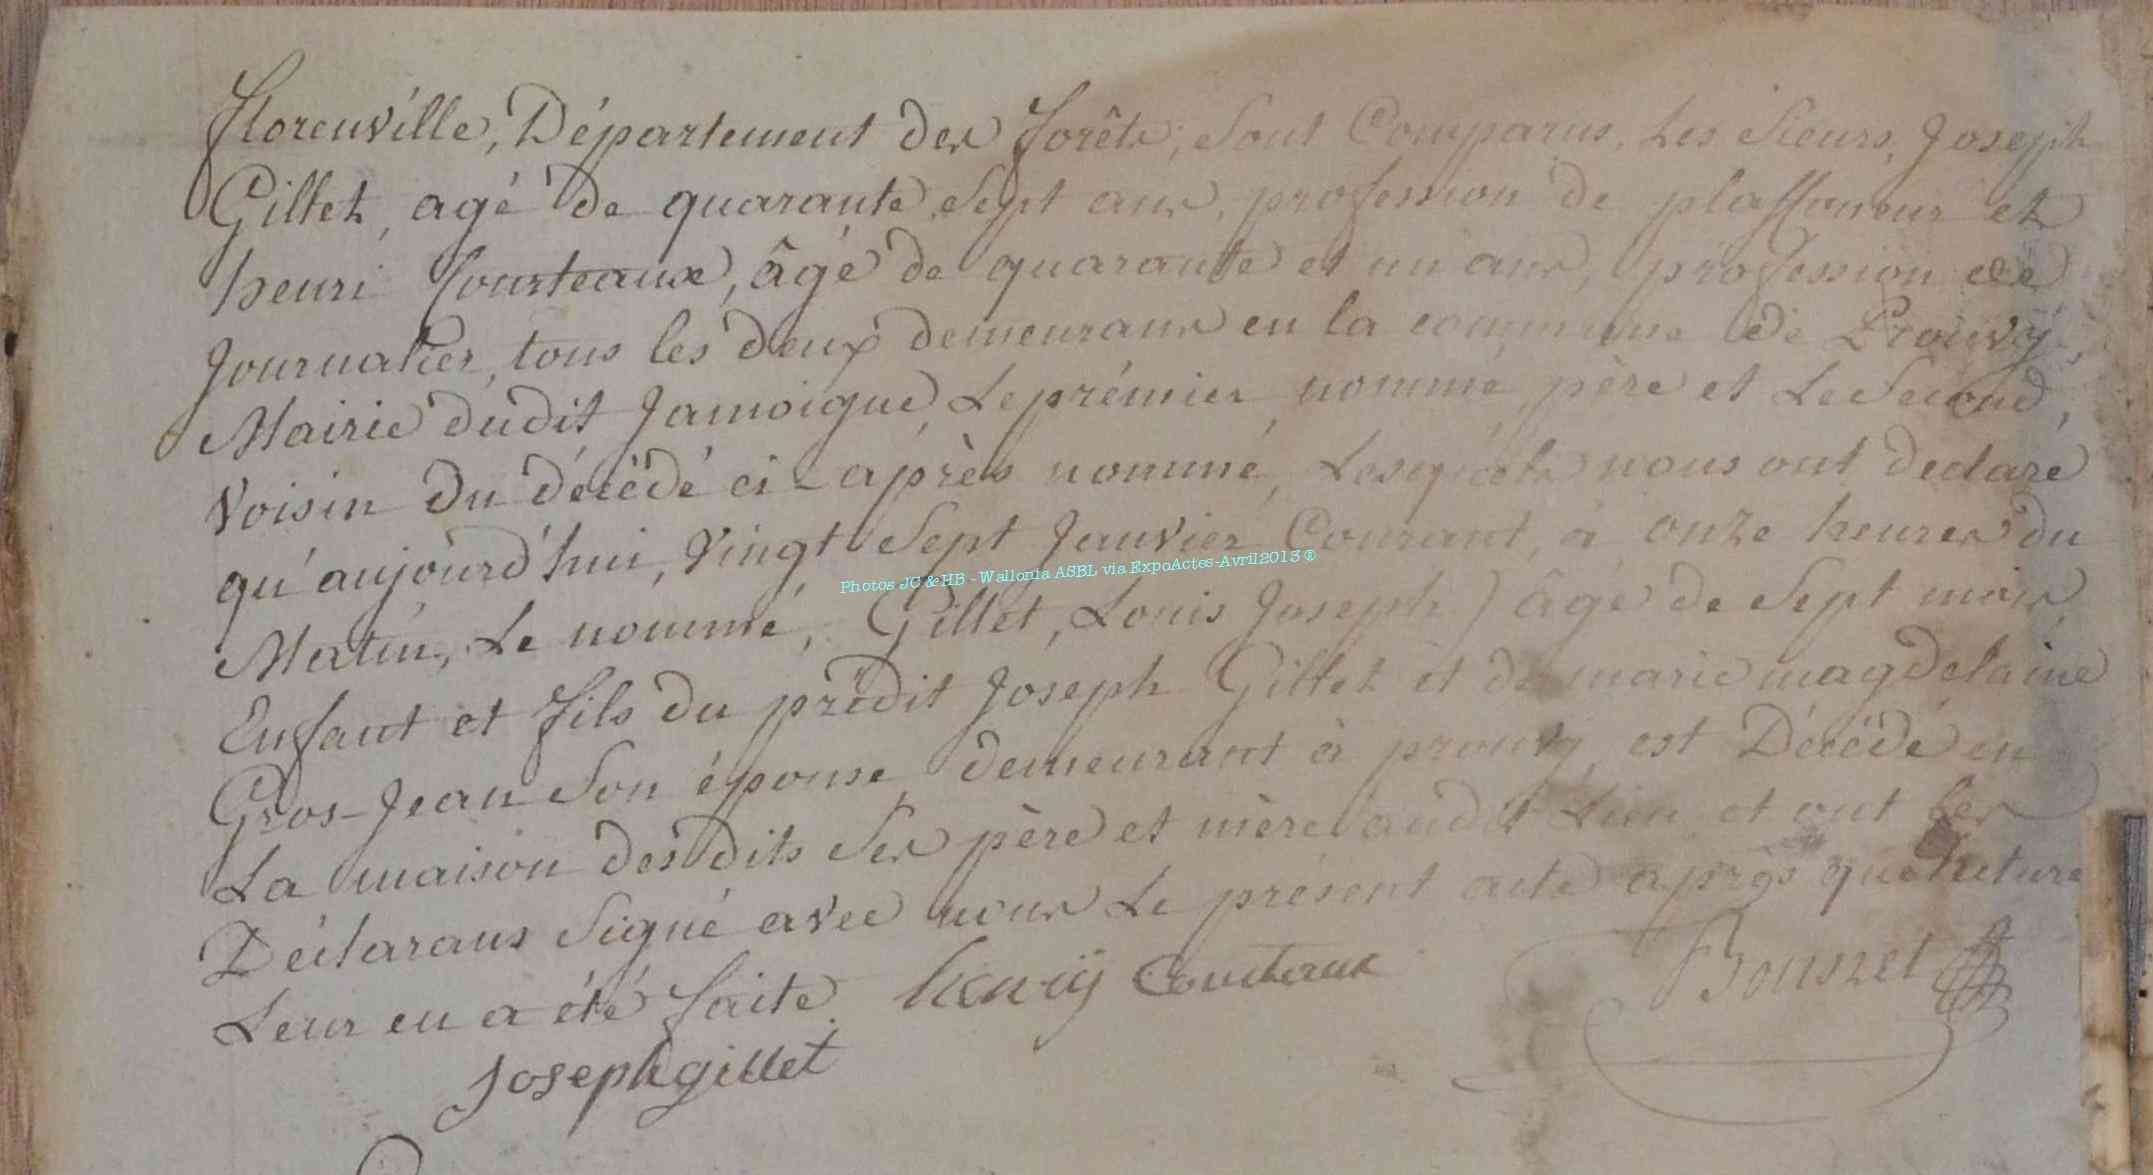 Florenville, Département des forêts, Sont Comparus, Les Sieurs, Joseph
Gillet, agé de quarante Sept ans, profession de plaffoneur et
henri Courteaux, âgé de quarante et un ans, profession de
Journalier, tous les deux demeurans en la commune de Prouvÿ,
Mairie dudit Jamoigue, Le prémier nommé, père et Le Second,
Voisin du décédé ci-après nommé, Lesquels nous ont declaré
qu'aujourd'hui, Vingt Sept Janvier Courant à onze heures du
Photos JC & HB - Wallonia ASBL via ExpoActes-Avril2013 ®
Matin, Le nommé, Gillet, Louis Joseph) âgé de Sept mois,
Enfant et fils du prédit Joseph Gillet et de marie magdelaine
Gros-Jean Son épouse, demeurant à prouvy, est Décédé en
La maison desdits Ses père et mère audit Lieu, et ont les
Déclarans Signé avec nous Le présent acte après que lecture
Leur en a été faite. henrij Courtaux
Bousnet
Joseph gillet